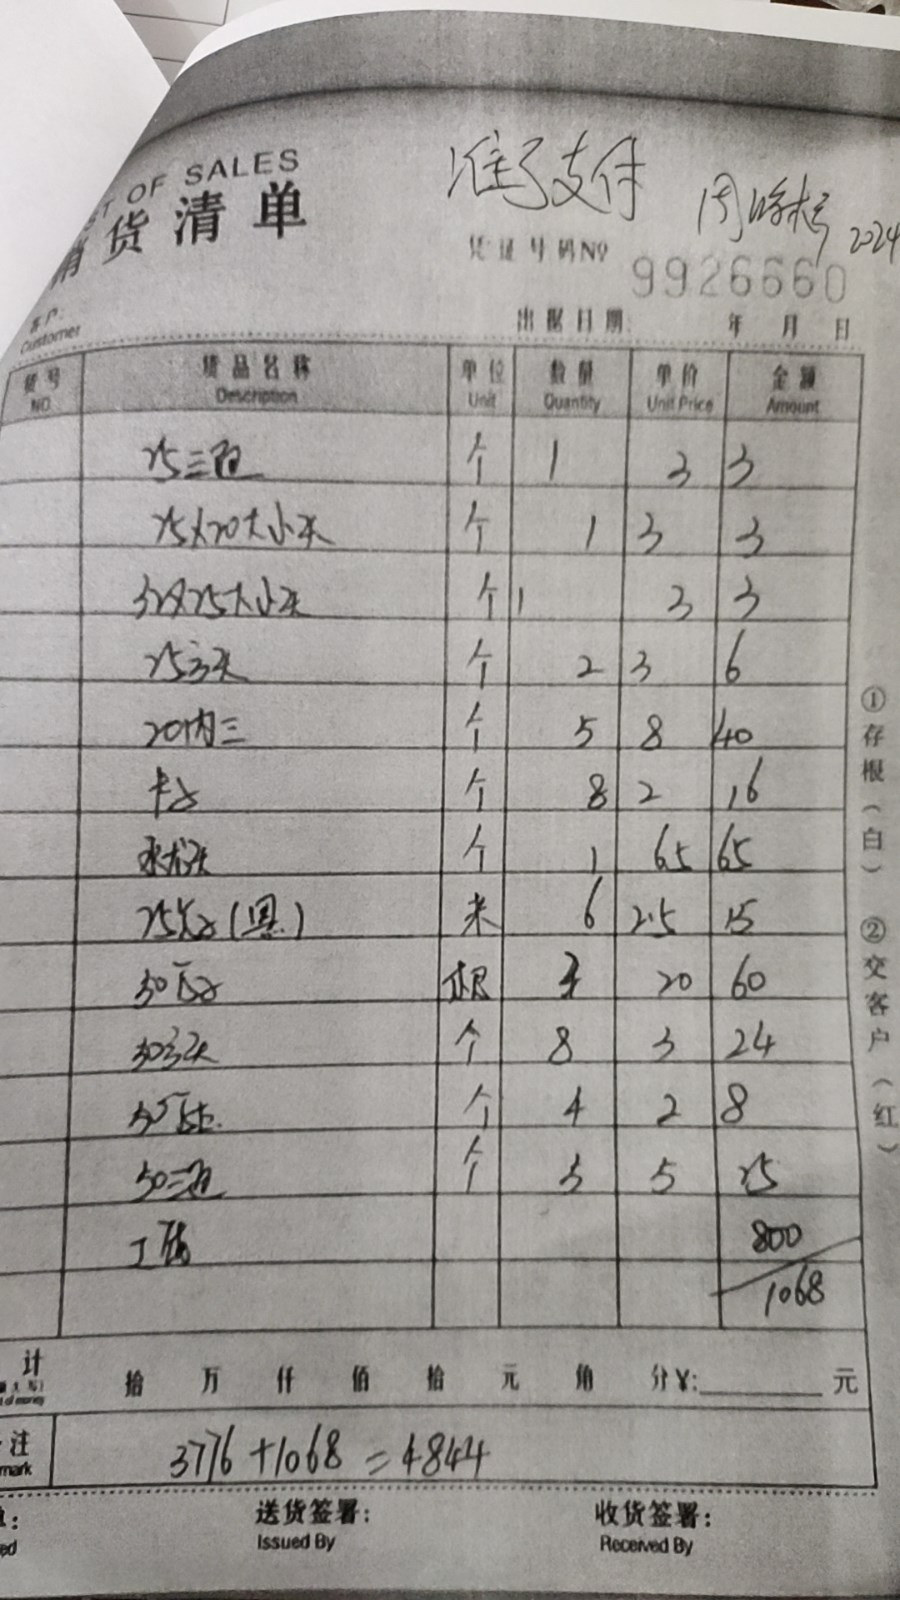 ST OF SALES
销货清单
准予支付
2024
凭证号码Nº 9926660
客户:
Customer
出据日期: 年 月 日
货号 货品名称 单位 数量 单价 金额
NO. Description Unit Quantity Unit Price Amount
25三通 个 1 3 3
25X20大小头 个 1 3 3
32X25大小头 个 1 3 3
25弯头 个 2 3 6
20内三 个 5 8 40
卡子 个 8 2 16
水龙头 个 1 65 65
25 (黑) 米 6 2.5 15
50 根 3 20 60
50弯头 个 8 3 24
50 个 4 2 8
50三通 个 5 5 25
工钱 800
1068
计 拾 万 仟 佰 拾 元 角 分¥: 元
①存根(白) ②交客户(红)
注 3776+1068=4844
mark
送货签署: 收货签署:
ed Issued By Received By